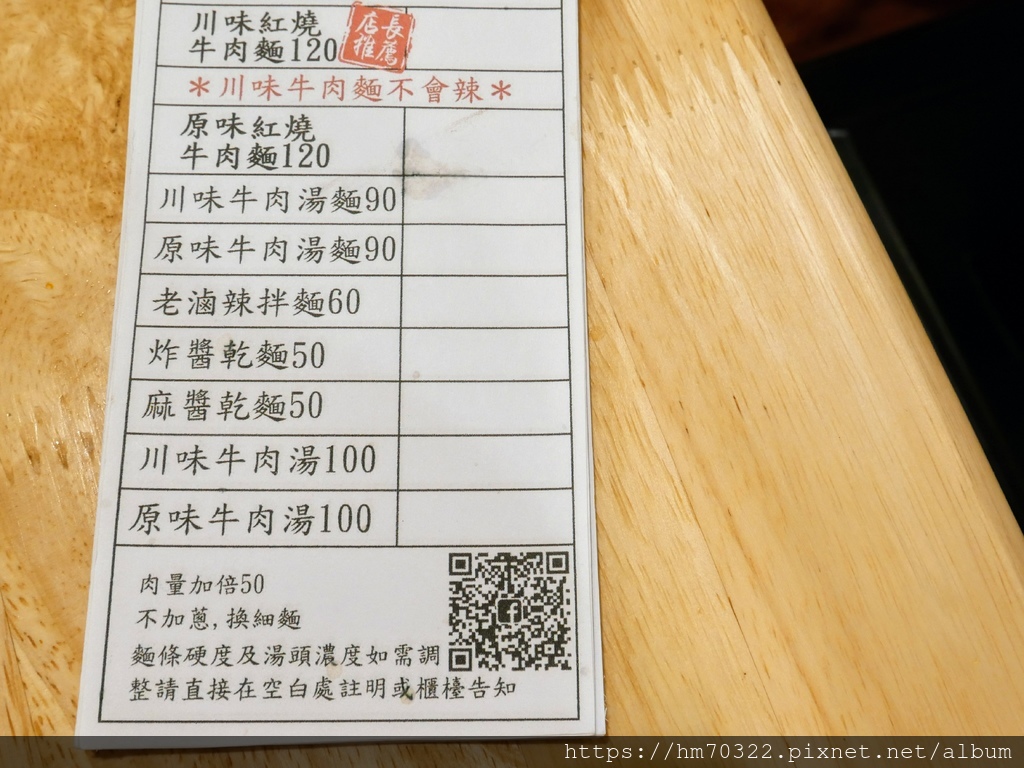 川味紅燒
牛肉麵120
店長
推薦
＊川味牛肉麵不會辣＊
原味紅燒
牛肉麵120
川味牛肉湯麵90
原味牛肉湯麵90
老滷辣拌麵60
炸醬乾麵50
麻醬乾麵50
川味牛肉湯100
原味牛肉湯100
肉量加倍50
不加蔥,換細麵
麵條硬度及湯頭濃度如需調
整請直接在空白處註明或櫃檯告知
https://hm70322.pixnet.net/album